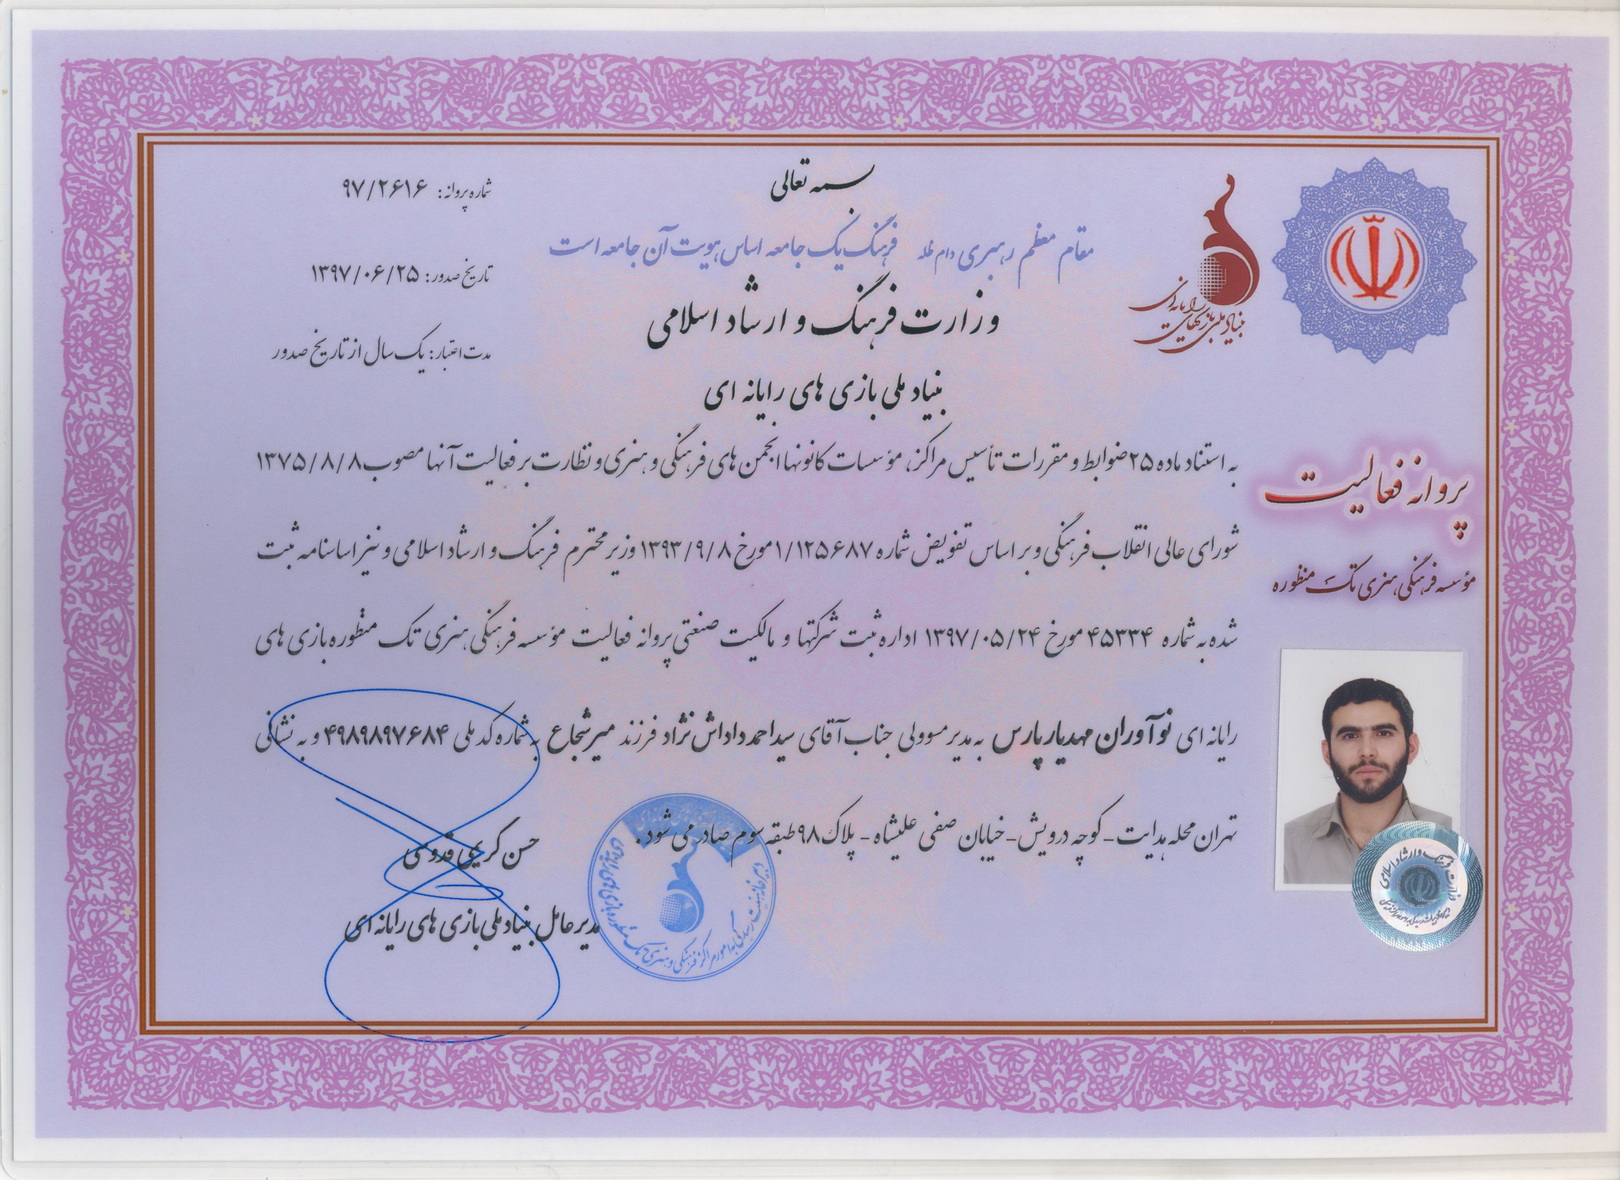 بسمه تعالی
مقام معظم رهبری دام ظله فرهنگ یک جامعه اساس هویت آن جامعه است
وزارت فرهنگ و ارشاد اسلامی
بنیاد ملی بازی های رایانه ای
شماره پروانه: ۹۷/۲۶۱۶
تاریخ صدور: ۱۳۹۷/۰۶/۲۵
مدت اعتبار: یک سال از تاریخ صدور
بنیاد ملی بازیهای رایانه ای
پروانه فعالیت
مؤسسه فرهنگی هنری تک منظوره
به استناد ماده ۲۵ ضوابط و مقررات تأسیس مراکز، مؤسسات کانونها انجمن های فرهنگی و هنری و نظارت بر فعالیت آنها مصوب ۱۳۷۵/۸/۸
شورای عالی انقلاب فرهنگی و بر اساس تفویض شماره ۱/۱۲۵۶۸۷ مورخ ۱۳۹۳/۹/۸ وزیر محترم فرهنگ و ارشاد اسلامی و نیز اساسنامه ثبت
شده به شماره ۴۵۳۳۴ مورخ ۱۳۹۷/۰۵/۲۴ اداره ثبت شرکتها و مالکیت صنعتی پروانه فعالیت مؤسسه فرهنگی هنری تک منظوره بازی های
رایانه ای نوآوران مهدیار پارس به مدیر مسوولی جناب آقای سید احمد داداش نژاد فرزند میرشجاع به شماره کد ملی ۴۹۸۹۸۹۷۶۸۴ و به نشانی
تهران محله هدایت - کوچه درویش - خیابان صفی علیشاه - پلاک ۹۸ طبقه سوم صادر می شود.
حسن کریمی قدوسی
مدیرعامل بنیاد ملی بازی های رایانه ای
وزارت فرهنگ و ارشاد اسلامی